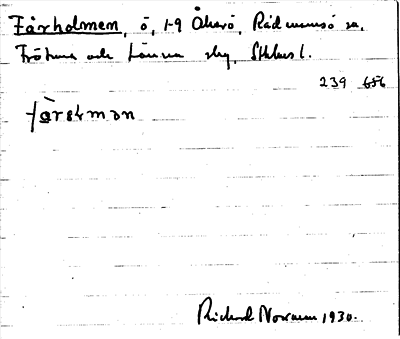 Fårholmen, ö, 1-9 Åkerö, Rådmansö sn,
Frötuna och Länna skg, Sthlms l.
239 656
Rickard Norman 1930.